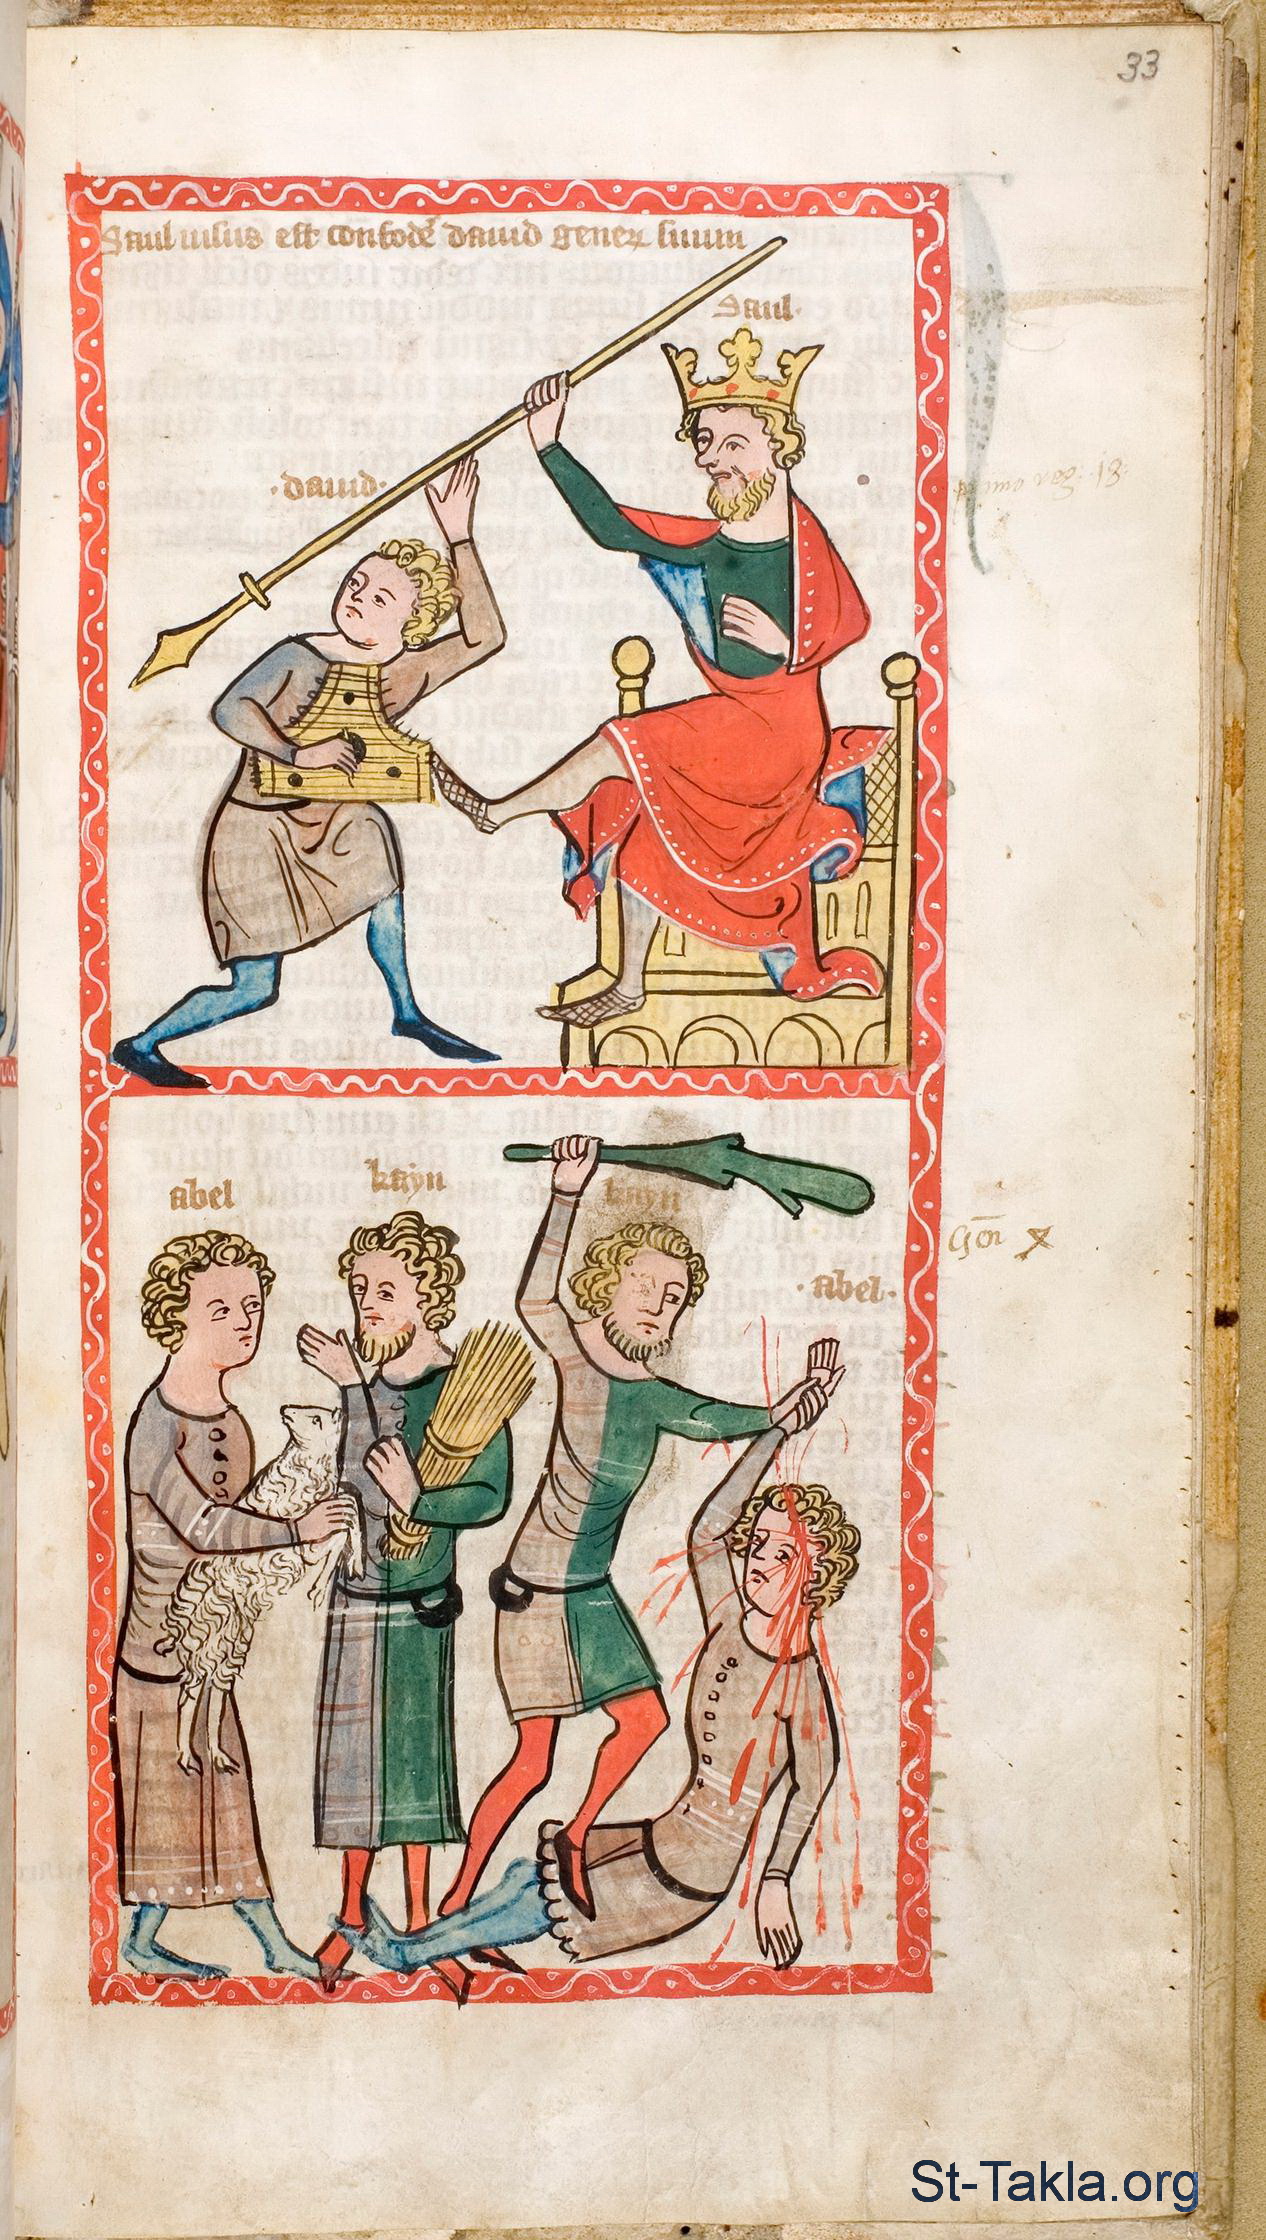 33
Saul uisus est confodẽ dauid generꝝ suum
Saul.
.dauid.
abel
kayn
kayn
.abel.
Gen̄ X
St-Takla.org